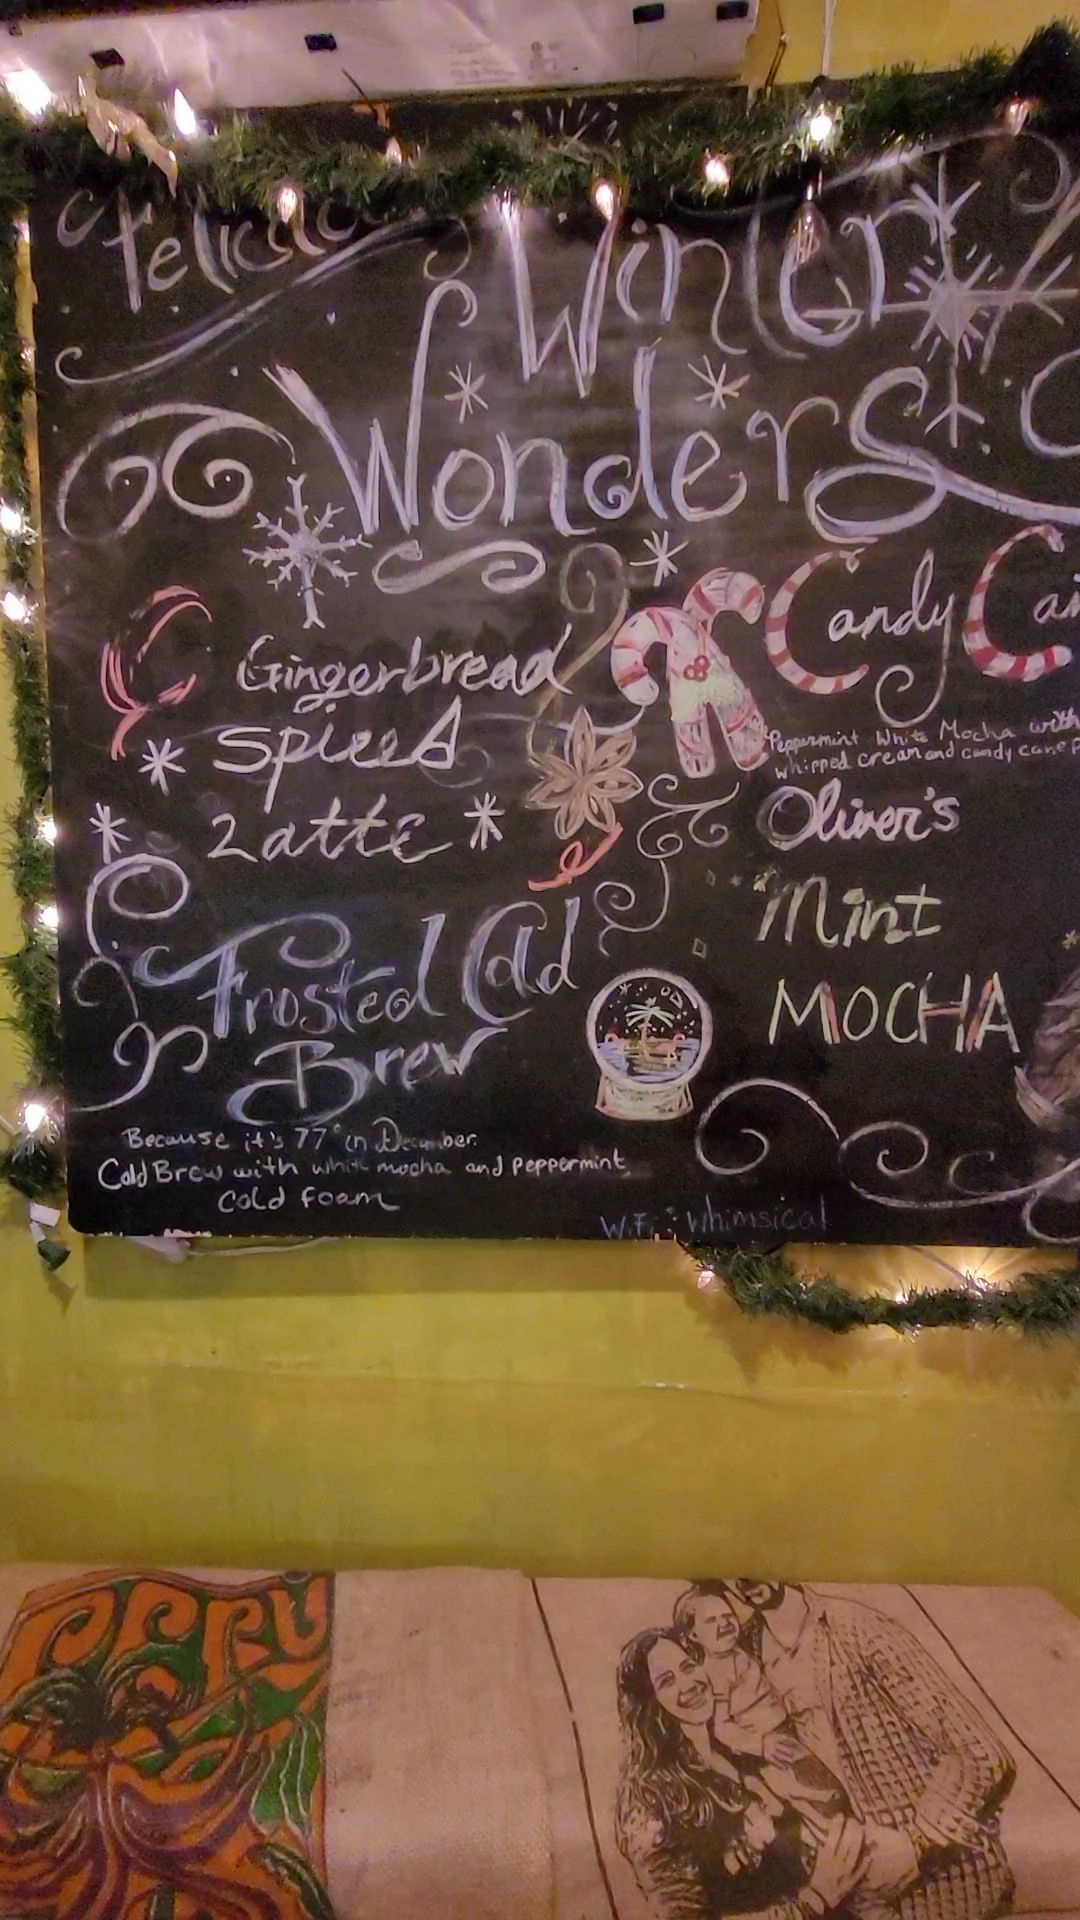 Felicia's
Winter
Wonders
Gingerbread
spiced
Latte
Frosted Cold
Brew
Because it's 77° in December.
Cold Brew with white mocha and peppermint
cold foam
Candy
Peppermint White Mocha with
whipped cream and candy cane
Oliver's
Mint
MOCHA
WiFi: whimsical
PERU